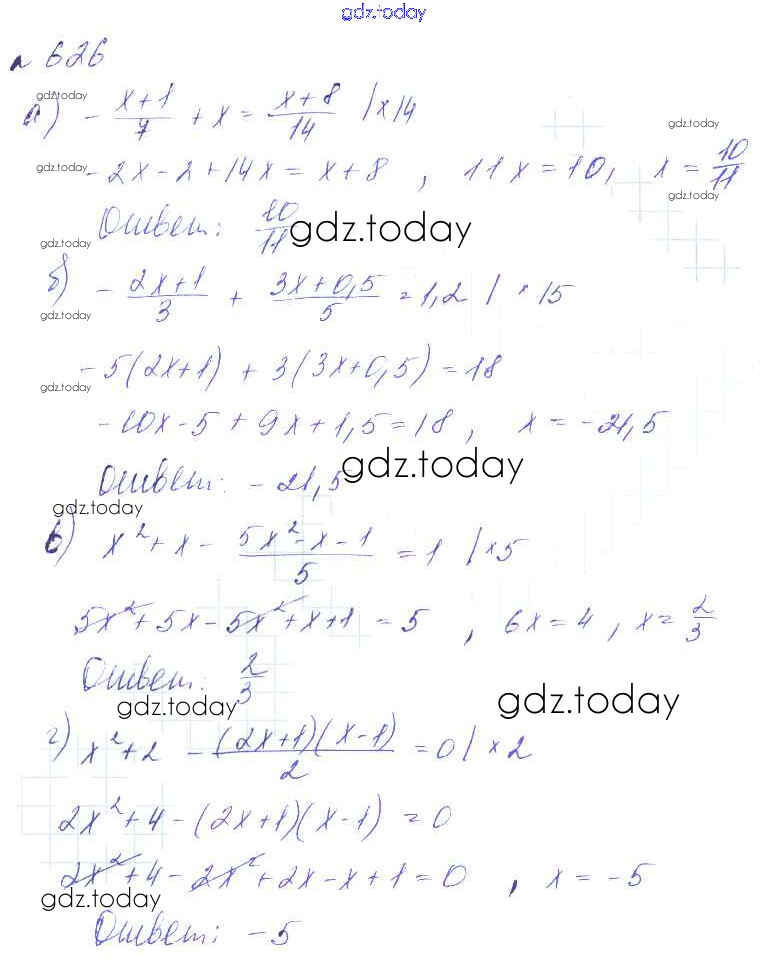 gdz.today
№ 626
gdz.today
а) - (x+1)/7 + x = (x+8)/14 | x 14
gdz.today
gdz.today
-2x-2+14x = x+8 , 11x=10, x = 10/11
gdz.today
Ответ: 10/11
gdz.today
gdz.today
б) - (2x+1)/3 + (3x+0,5)/5 = 1,2 | · 15
gdz.today
-5(2x+1) + 3(3x+0,5) = 18
gdz.today
-10x-5+9x+1,5=18 , x = -21,5
gdz.today
Ответ: -21,5
gdz.today
в) x²+x - (5x²-x-1)/5 = 1 | x5
5x²+5x-5x²+x+1 = 5 , 6x=4 , x= 2/3
Ответ: 2/3
gdz.today
gdz.today
г) x²+2 - (2x+1)(x-1)/2 = 0 | x 2
2x²+4-(2x+1)(x-1) = 0
2x²+4-2x²+2x-x+1=0 , x = -5
gdz.today
Ответ: -5
gdz.today